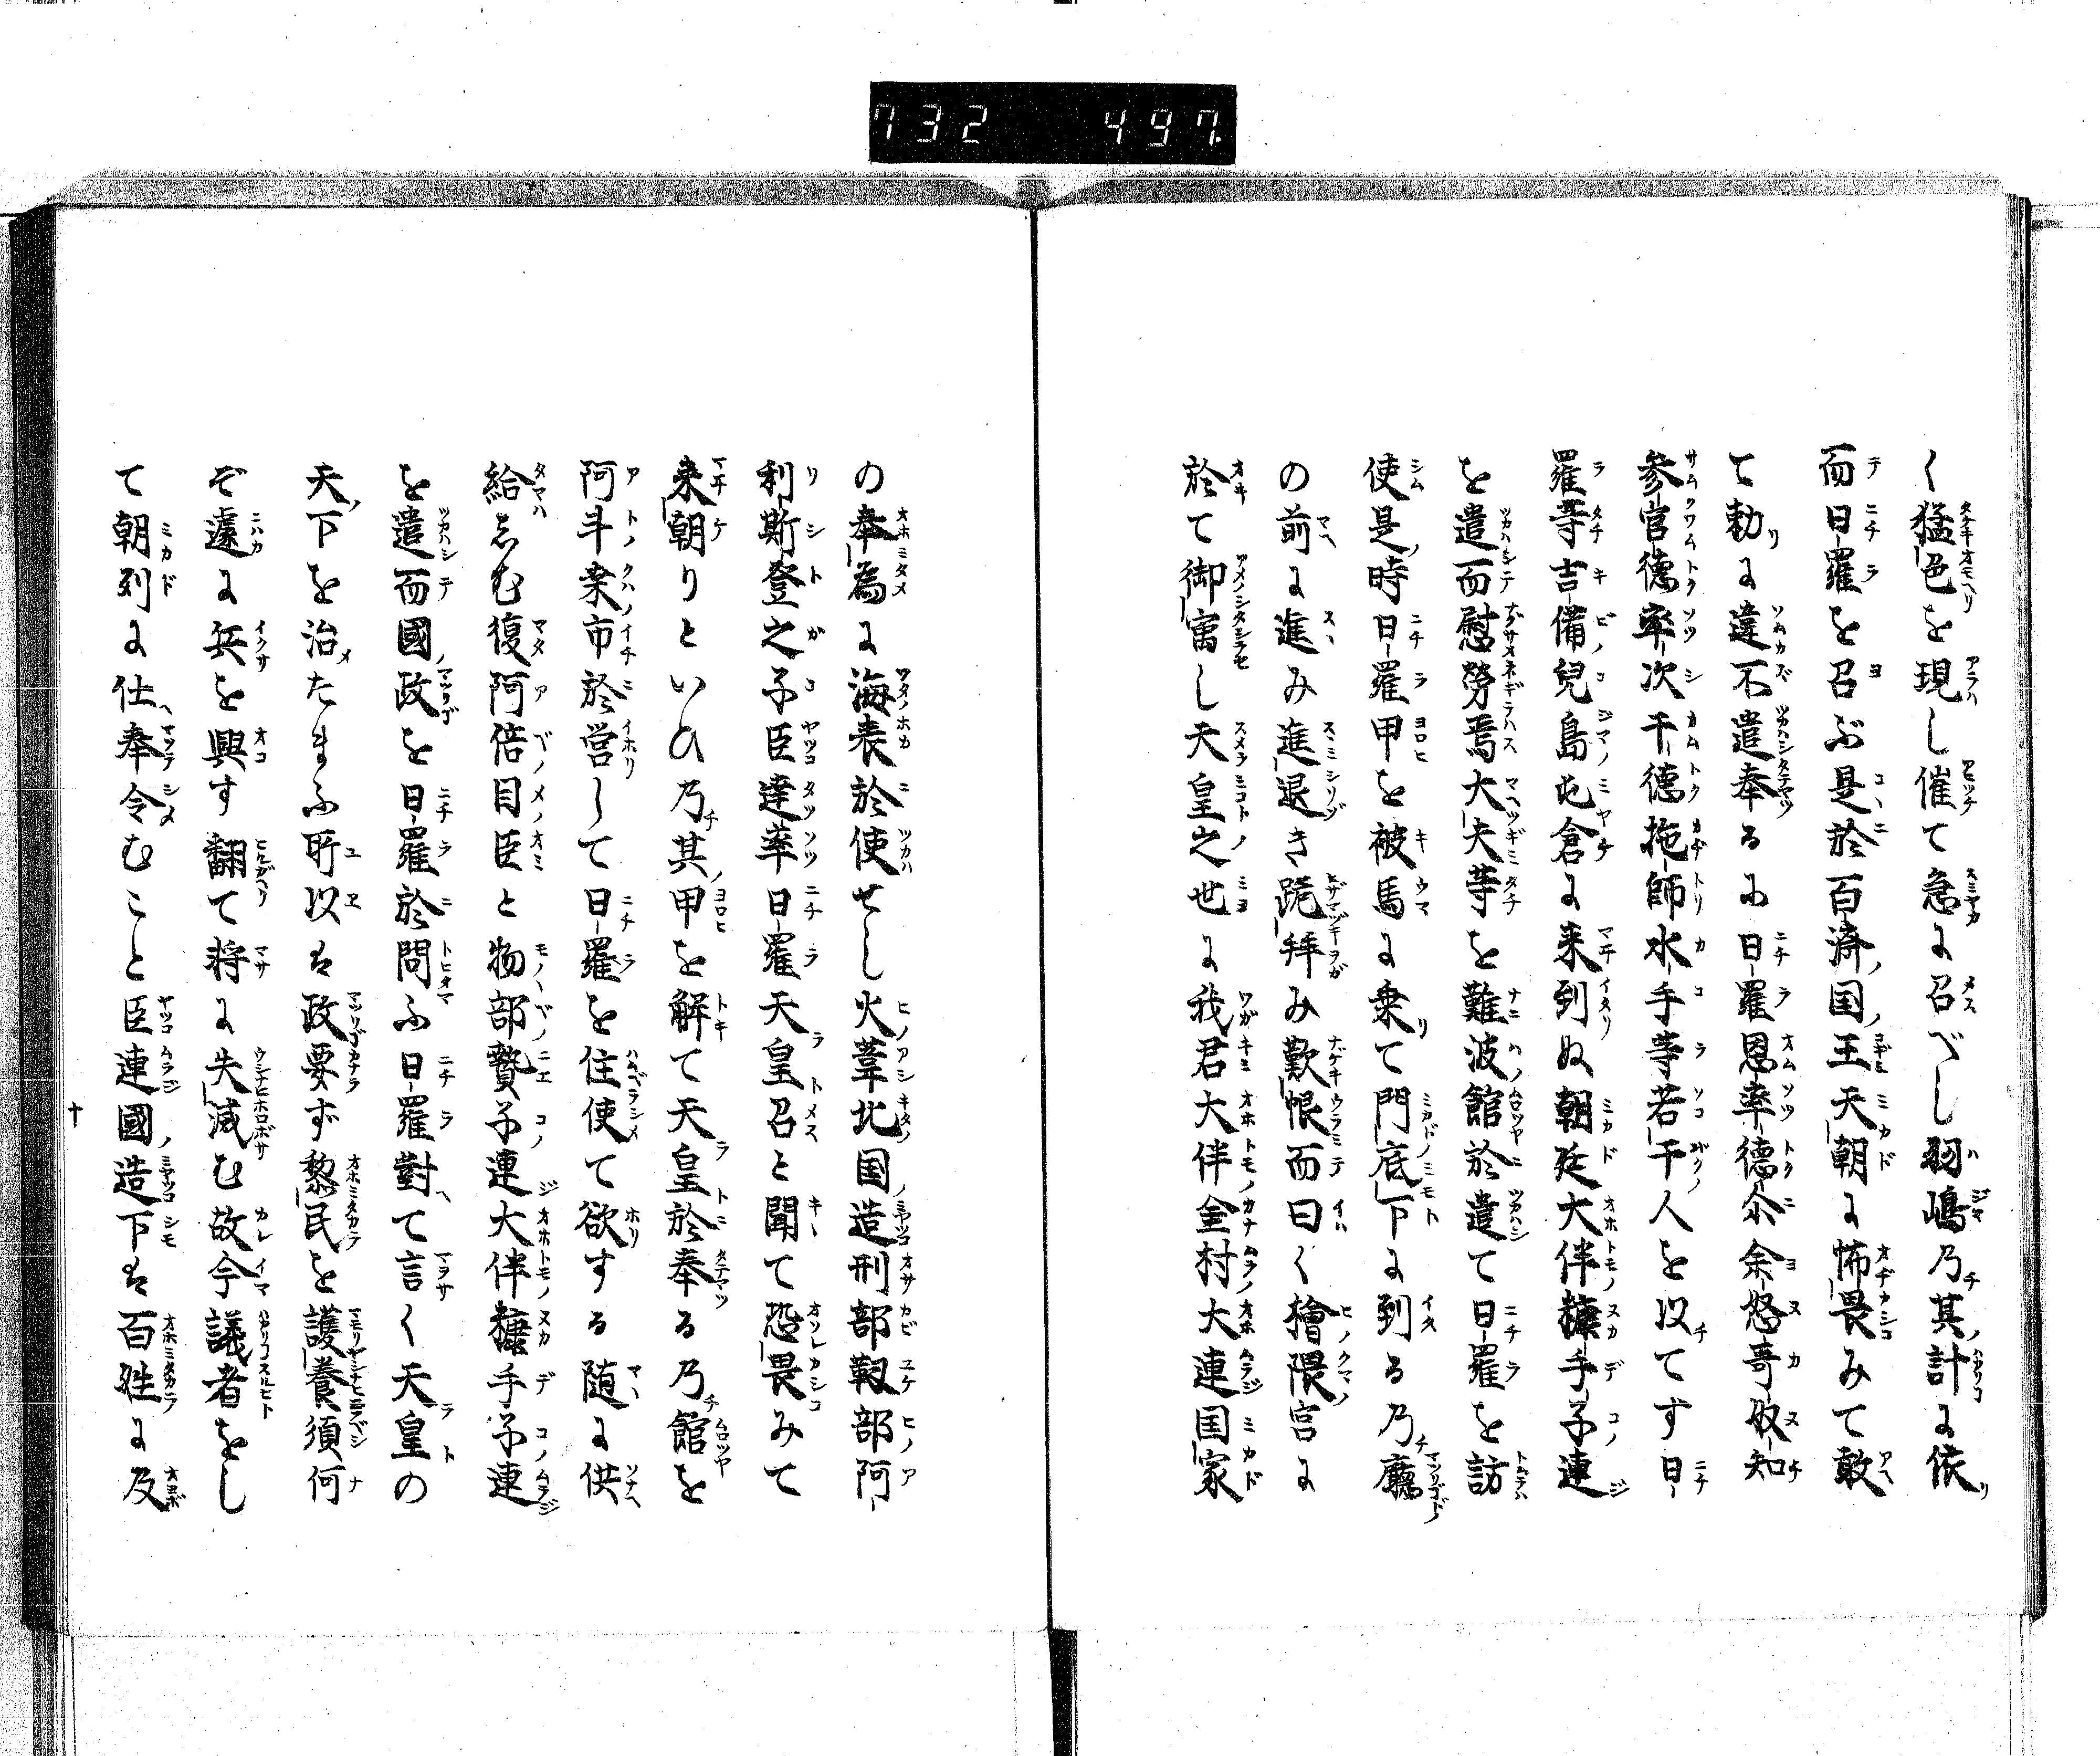 732 497.
く猛色を現し催て急に召べし羽嶋乃其計に依
而日羅を召ぶ是於百済国王天朝に怖畏みて敢
て勅に違不遣奉るに日羅恩率徳尒余怒哥奴知
参官徳率次干徳拖師水手等若干人を以てす日
羅等吉備兒島屯倉に来到ぬ朝廷大伴糠手子連
を遣而慰勞焉大夫等を難波館於遣て日羅を訪
使是時日羅甲を被馬に乗て門底下に到る乃廳
の前に進み進退き跪拝み歎恨而曰く檜隈宮に
於て御寓し天皇之世に我君大伴金村大連国家
の奉為に海表於使せし火葦北国造刑部靫部阿
利斯登之子臣達率日羅天皇召と聞て恐畏みて
来朝りといひ乃其甲を解て天皇於奉る乃館を
阿斗桒市於営して日羅を住使て欲する随に供
給志む復阿倍目臣と物部贄子連大伴糠手子連
を遣而國政を日羅於問ふ日羅對て言く天皇の
天下を治たまふ所以は政要ず黎民を護養須何
ぞ遽に兵を興す翻て将に失滅む故今議者をし
て朝列に仕奉令むこと臣連國造下は百姓に及